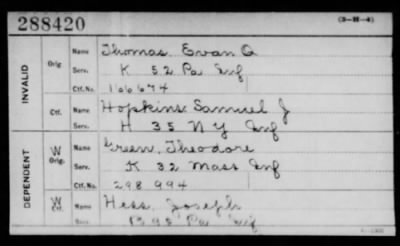 288420 (3-H-4)
INVALID
Orig. Name Thomas, Evan O
Serv. K 52 Pa Inf
Ctf. No. 166674
Ctf. Name Hopkins Samuel J
Serv. H 35 N Y Inf
DEPENDENT
W Orig. Name Green, Theodore
Serv. K 32 Mass Inf
Ctf. No. 298 994
W Ctf. Name Hess, Joseph
Serv. B 95 Pa Inf